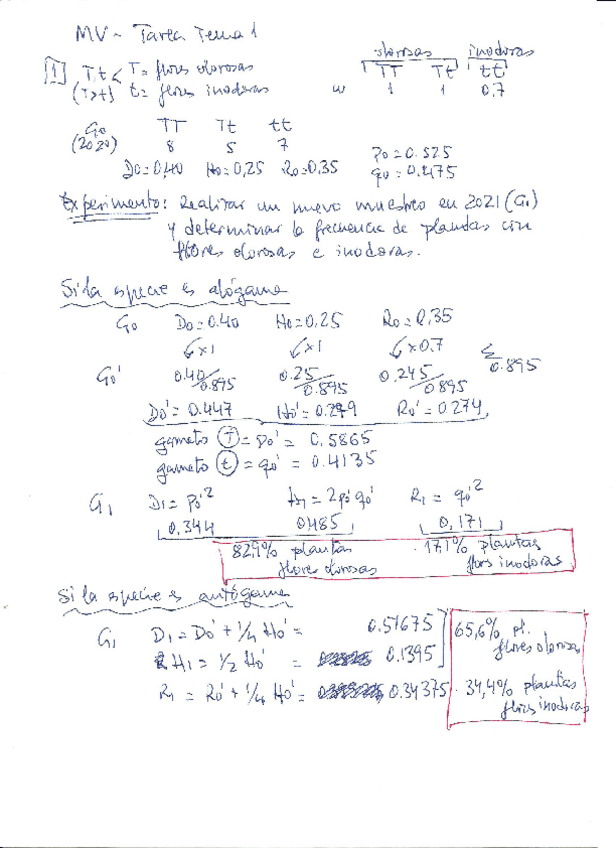 MV - Tarea Tema 1
olorosas inodoras
1 Tt < T = flores olorosas TT Tt tt
(T>t) t = flores inodoras w 1 1 0.7
G0 TT Tt tt
(2020) 8 5 7 p0 = 0.525
D0 = 0,40 H0 = 0,25 R0 = 0.35 q0 = 0.475
Experimento: Realizar un nuevo muestreo en 2021 (G1)
y determinar la frecuencia de plantas con
flores olorosas e inodoras.
Si la especie es alógama
G0 D0 = 0.40 H0 = 0,25 R0 = 0,35
x1 x1 x0.7
G0' 0.40/0.895 0.25/0.895 0.245/0.895 Σ 0.895
D0' = 0.447 H0' = 0.279 R0' = 0.274
gameto T = p0' = 0.5865
gameto t = q0' = 0.4135
G1 D1 = p0'² H1 = 2p0'q0' R1 = q0'²
0.344 0.485 0,171
82,9% plantas flores olorosas 17,1% plantas flores inodoras
Si la especie es autógama
G1 D1 = D0' + 1/4 H0' = 0.51675 65,6% pl. flores olorosas
H1 = 1/2 H0' = 0.1395
R1 = R0' + 1/4 H0' = 0.34375 34,4% plantas flores inodoras